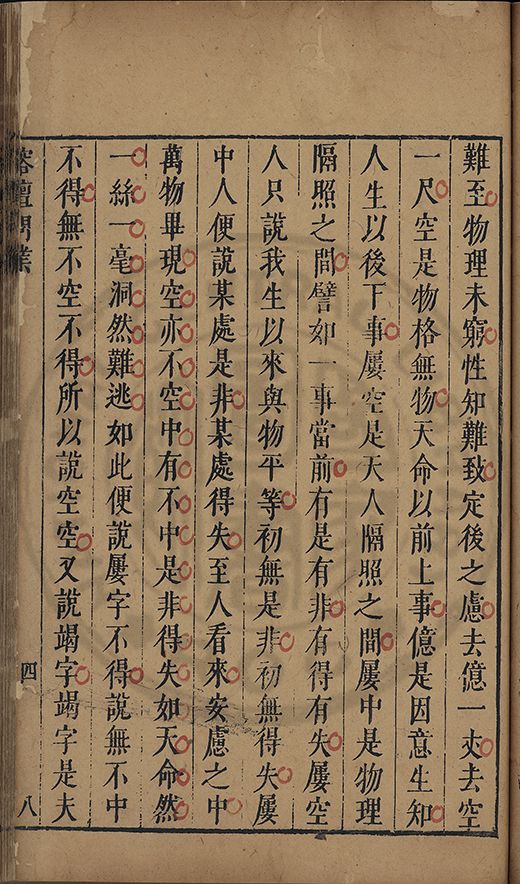 難至物理未窮性知難致定後之慮去億一丈去空
一尺空是物格無物天命以前上事億是因意生知
人生以後下事屢空是天人隔照之間屢中是物理
隔照之間譬如一事當前有是有非有得有失屢空
人只說我生以來與物平等初無是非初無得失屢
中人便說某處是非某處得失至人看來安慮之中
萬物畢現空亦不空中有不中是非得失如天命然
一絲一毫洞然難逃如此便說屢字不得說無不中
不得無不空不得所以說空空又說竭字竭字是夫
榕壇問業
四
八